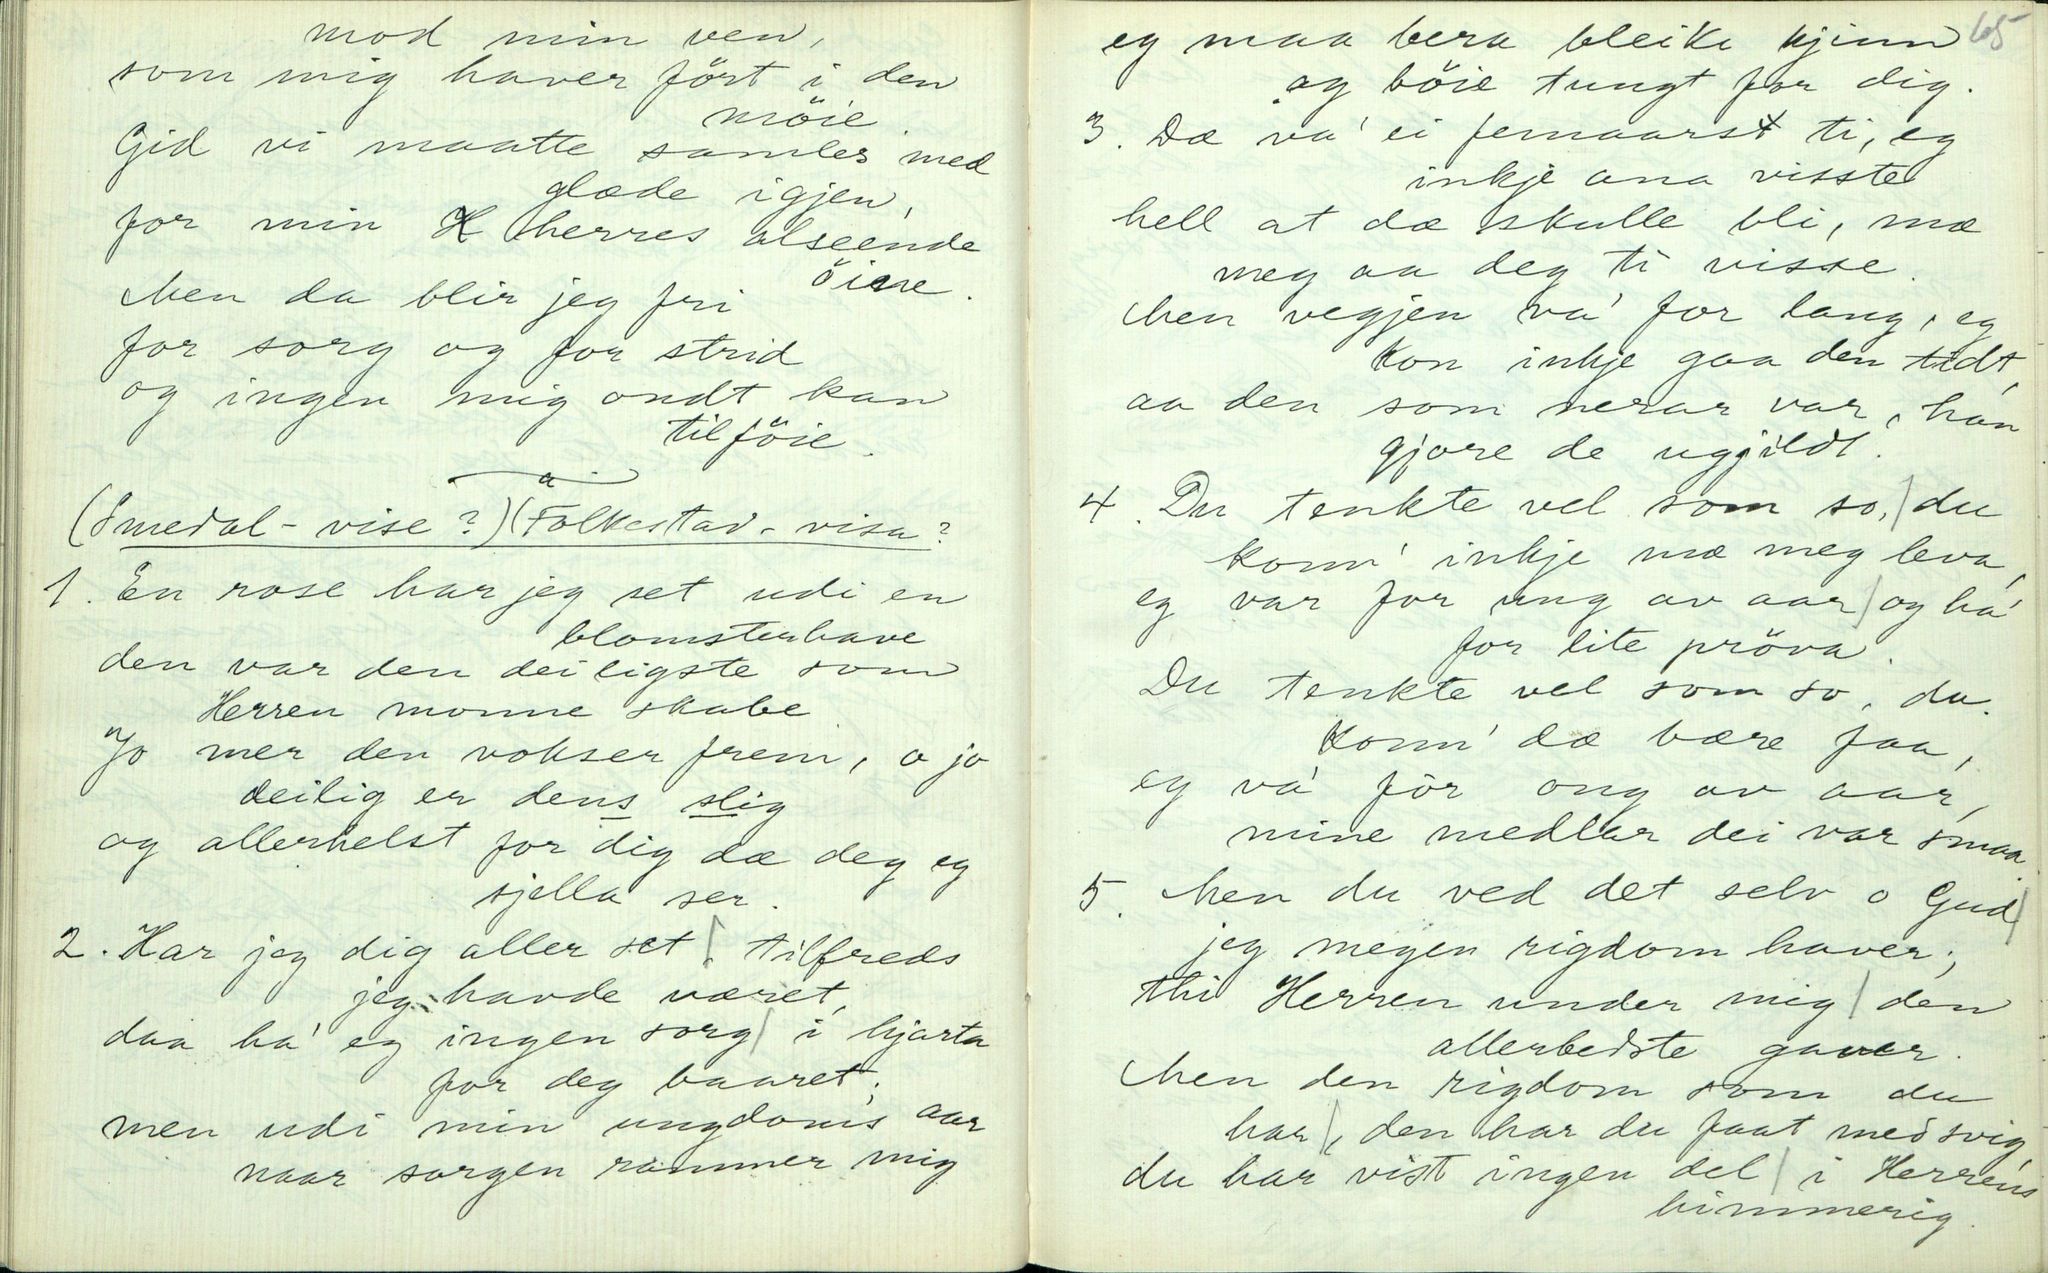 mod min ven,
som mig haver ført i den
møie.
Gid vi maatte samles med
glæde igjen,
for min herres alseende
öine.
Men da blir jeg fri
for sorg og for strid
og ingen mig ondt kan
tilföie.
(Smedal - vise?) (Folkestad - visa?
1. En rose har jeg set udi en
blomsterhave
den var den deiligste som
Herren monne skabe
Jo mer den vokser frem, o jo
deilig er dens slig
og allerhelst for dig dæ deg eg
sjella ser.
2. Har jeg dig aller set, tilfreds
jeg havde været,
daa ha' eg ingen sorg / i hjarta
for deg baaret;
men udi min ungdoms aar
naar sorgen rammer mig
65
eg maa bera bleike kjinn
og böie tungt for dig.
3. Dæ va' ei femaarst ti, eg
inkje ana visste
hell at dæ skulle bli, mæ
meg aa deg ti visse.
Men vegjen va' for lang, eg
kon inkje gaa den tidt,
aa den som nerar var, han
gjore de ugjildt.
4. Du tenkte vel som so, / du
konn' inkje mæ meg leva,
eg var for ung av aar / og ha'
for lite pröva.
Du tenkte vel som so, du
konn' dæ bære faa,
eg va' för ong av aar,
mine medlar dei var smaa.
5. Men du ved det selv o Gud /
jeg megen rigdom haver;
thi Herren under mig / den
allerbedste gaver.
Men den rigdom som du
har /, den har du faat med svig,
du har vist ingen del / i Herrens
himmerig.